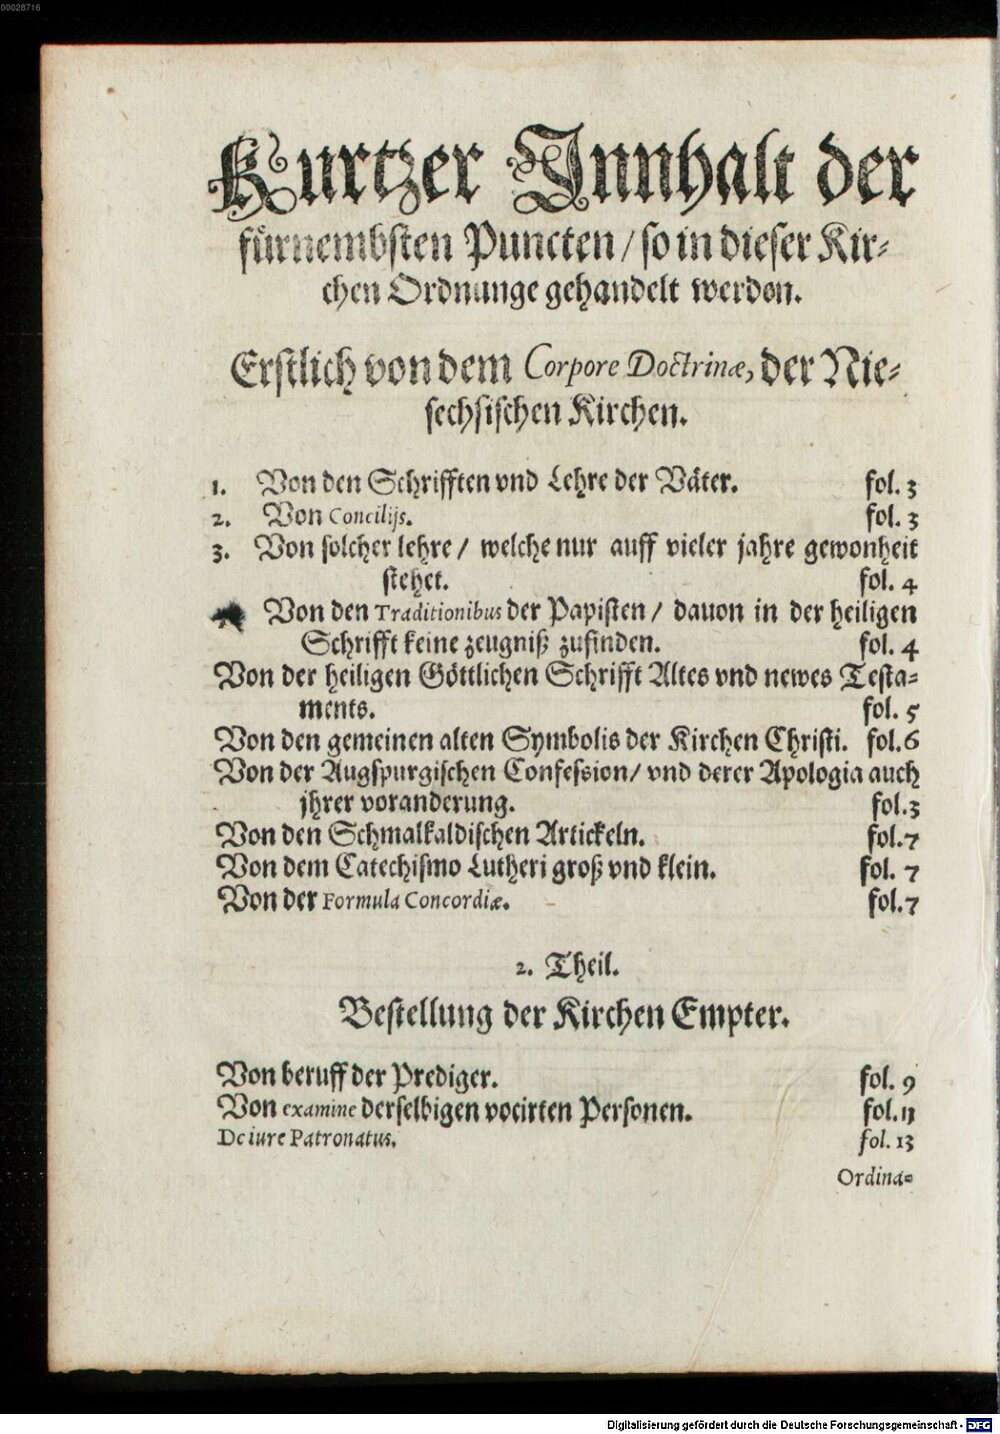 00028716
Kurtzer Innhalt der
fürnembsten Puncten / so in dieser Kir-
chen Ordnunge gehandelt werden.
Erstlich von dem Corpore Doctrinæ, der Nie-
sechsischen Kirchen.
1. Von den Schrifften vnd Lehre der Väter. fol. 3
2. Von Concilijs. fol. 3
3. Von solcher lehre / welche nur auff vieler jahre gewonheit
stehet. fol. 4
Von den Traditionibus der Papisten / dauon in der heiligen
Schrifft keine zeugniß zufinden. fol. 4
Von der heiligen Göttlichen Schrifft Altes vnd newes Testa-
ments. fol. 5
Von den gemeinen alten Symbolis der Kirchen Christi. fol. 6
Von der Augspurgischen Confession / vnd derer Apologia auch
jhrer voranderung. fol. 3
Von den Schmalkaldischen Artickeln. fol. 7
Von dem Catechismo Lutheri groß vnd klein. fol. 7
Von der Formula Concordiæ. fol. 7
2. Theil.
Bestellung der Kirchen Empter.
Von beruff der Prediger. fol. 9
Von examine derselbigen vocirten Personen. fol. 11
De iure Patronatus. fol. 13
Ordina-
Digitalisierung gefördert durch die Deutsche Forschungsgemeinschaft - DFG